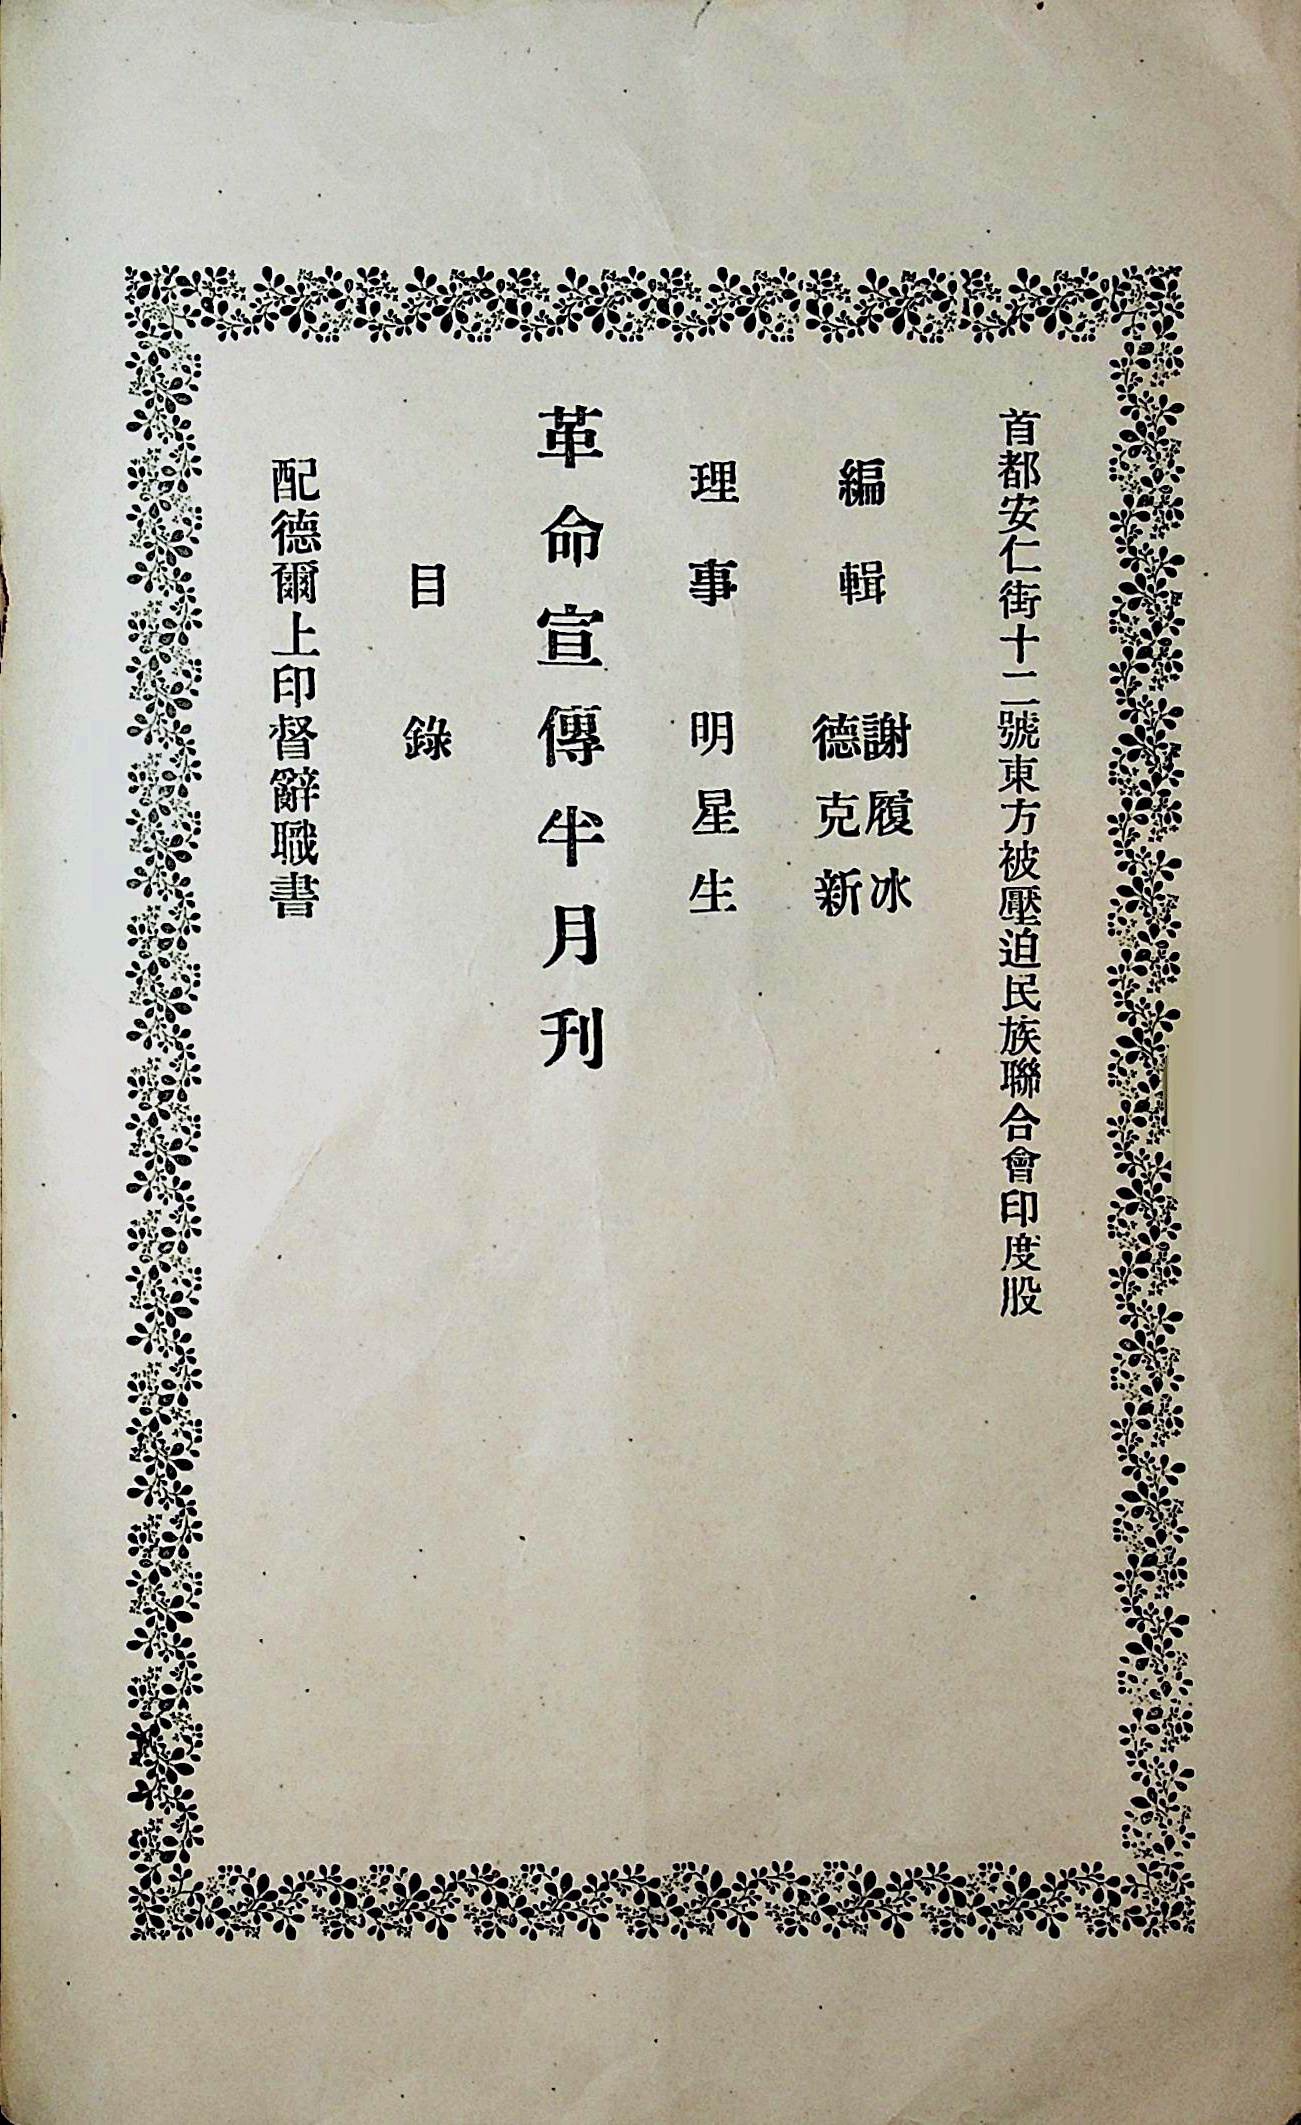 首都安仁街十二號東方被壓迫民族聯合會印度股
編輯 謝履冰
德克新
理事 明星生
革命宣傳半月刊
目錄
配德爾上印督辭職書